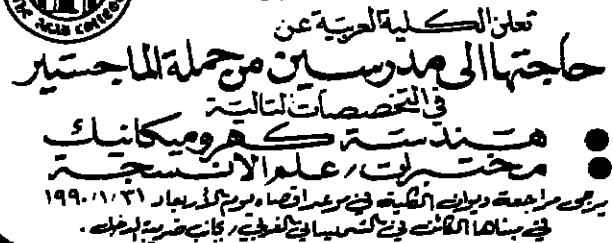 THE ARAB COLLEGE
تعلن الكلية العربية عن
حاجتها الى مدرسين من حملة الماجستير
في التخصصات التالية
● هندسة كهروميكانيك
● مختبرات / علم الانسجة
يرجى مراجعة ديوان الكلية في موعد اقصاه يوم الأربعاء ١٩٩٠/١/٣١
في مبناها الكائن في الشميساني الغربي / بجانب ضريبة الدخل .